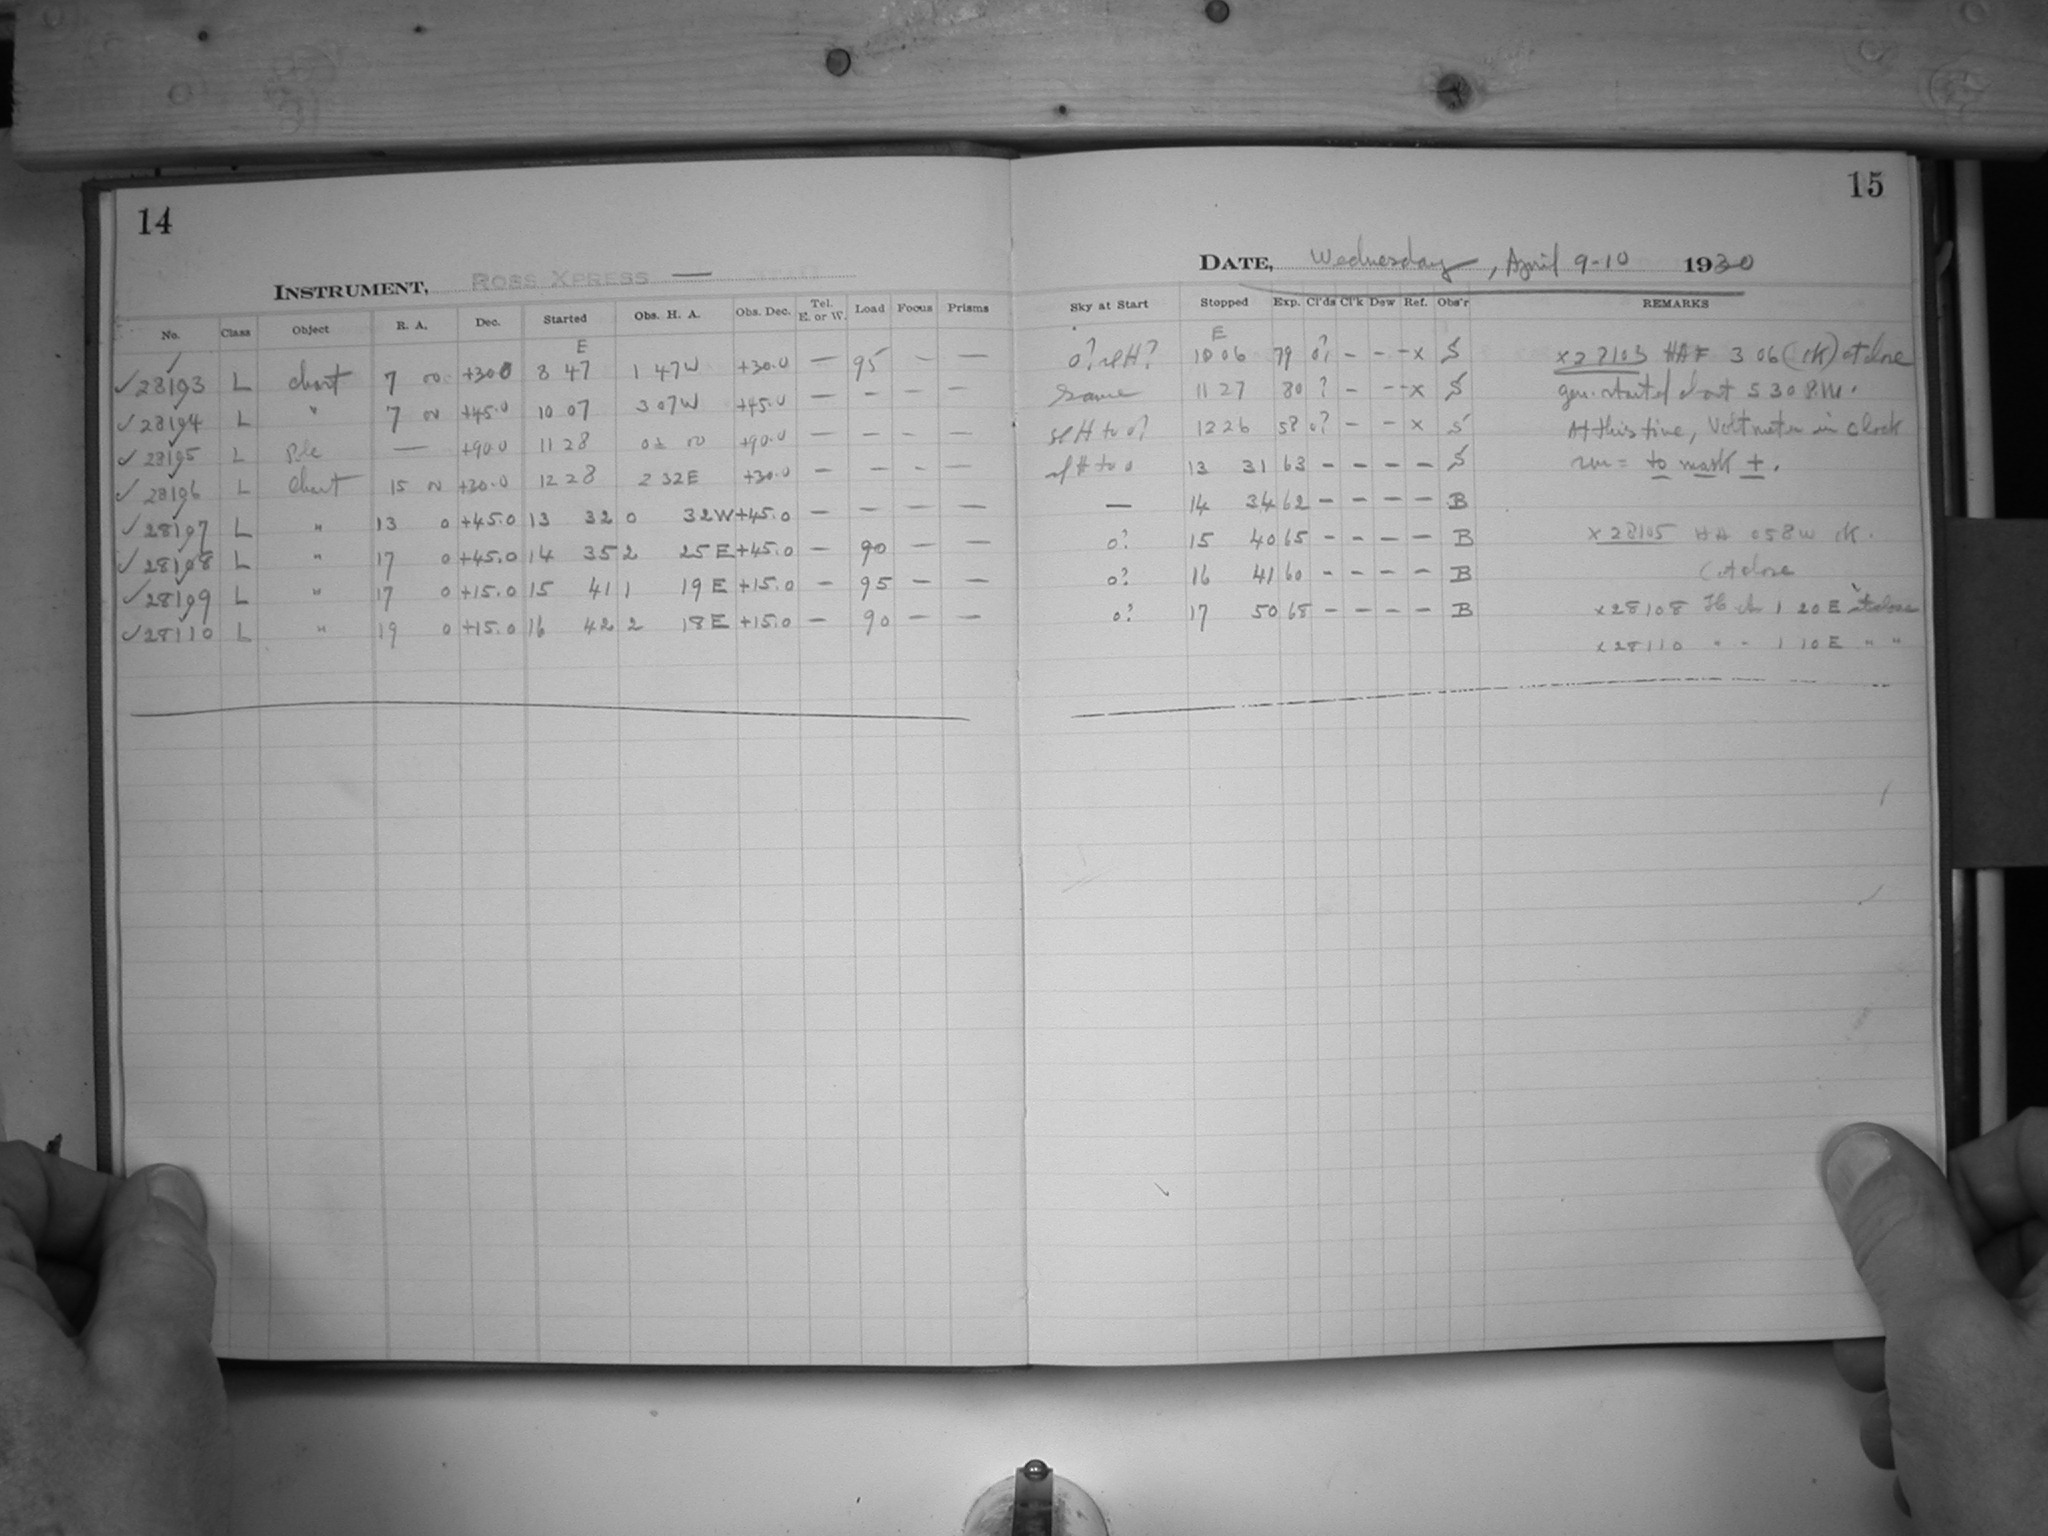 14
INSTRUMENT, ROSS XPRESS —
No. Class Object R. A. Dec. Started Obs. H. A. Obs. Dec. Tel. E. or W. Load Focus Prisms
E
✓28103 L chart 7 00 +30.0 8 47 1 47W +30.0 — 95 – —
✓28104 L " 7 00 +45.0 10 07 3 07W +45.0 — – – —
✓28105 L Pole — +90.0 11 28 00 +90.0 — – – —
✓28106 L Chart 15 00 +30.0 12 28 2 32E +30.0 — – – —
✓28107 L " 13 0 +45.0 13 32 0 32W +45.0 — — — —
✓28108 L " 17 0 +45.0 14 35 2 25E +45.0 — 90 — —
✓28109 L " 17 0 +15.0 15 41 1 19E +15.0 — 95 — —
✓28110 L " 19 0 +15.0 16 42 2 18E +15.0 — 90 — —
15
DATE, Wednesday, April 9-10 1930
Sky at Start Stopped Exp. Cl'ds Cl'k Dew Ref. Obs'r REMARKS
E
0? 10 06 79 0? – – –x S x28103 HA= 3 06 at close
same 11 27 80 ? – –– x S gen. started about 5 30 P.M.
to 0? 12 26 58 0? – – x S At this time, Voltmeter in clock
to 0 13 31 63 – – – – S to mask +.
— 14 34 62 – – – – B
0? 15 40 65 – – – – B x 28105 HA 0 58W
0? 16 41 60 – – – – B at close
0? 17 50 68 – – – – B x28108 H A 1 20 E at close
x 28110 " " 1 10 E " "